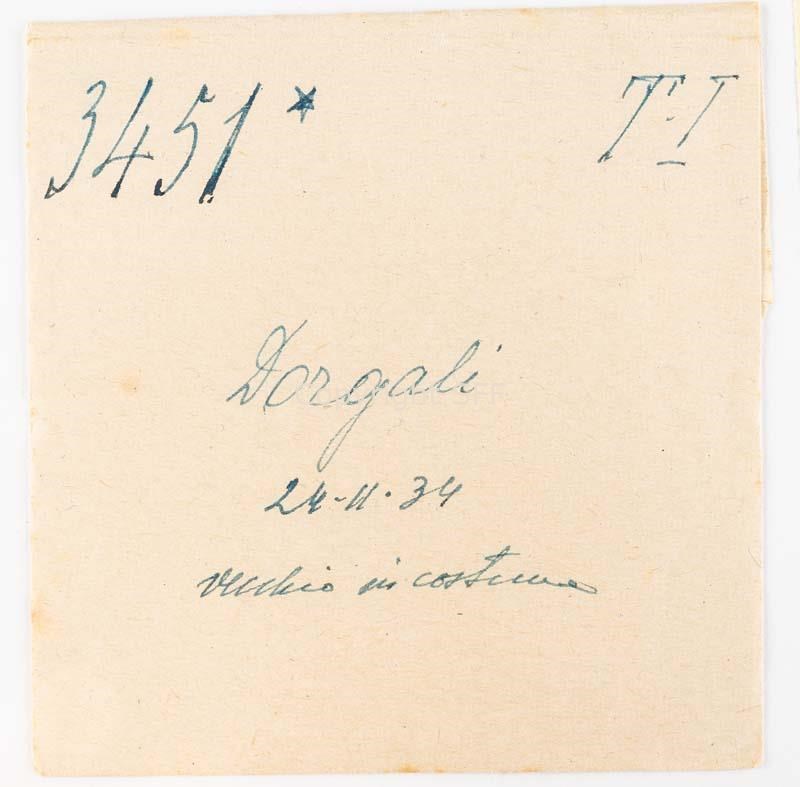 3451* T.I
Dorgali
24-11-34
vecchio in costume